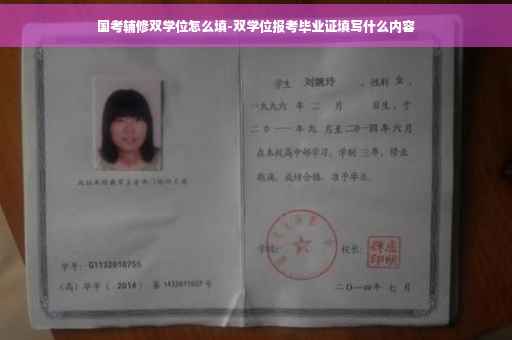 国考辅修双学位怎么填-双学位报考毕业证填写什么内容
学生 刘婉玲 ，性别 女 ，
一九九六 年 二 月 日生，于
二0一一 年 九 月至 二0一四 年 六 月
在本校高中部学习，学制 三年，修业
期满，成绩合格，准予毕业。
学校： 校长：
学号： G1132010755
（高）毕字（ 2014 ）第 1432011027 号
二〇一四年 七 月